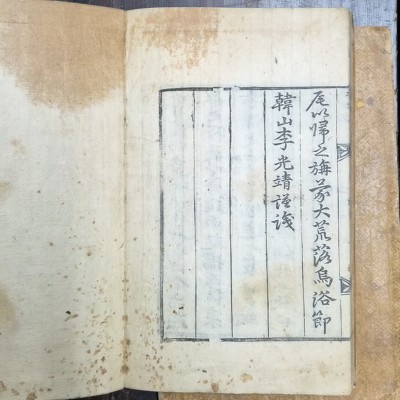 尾以歸之旃蒙大荒落烏浴節
韓山李光靖謹識